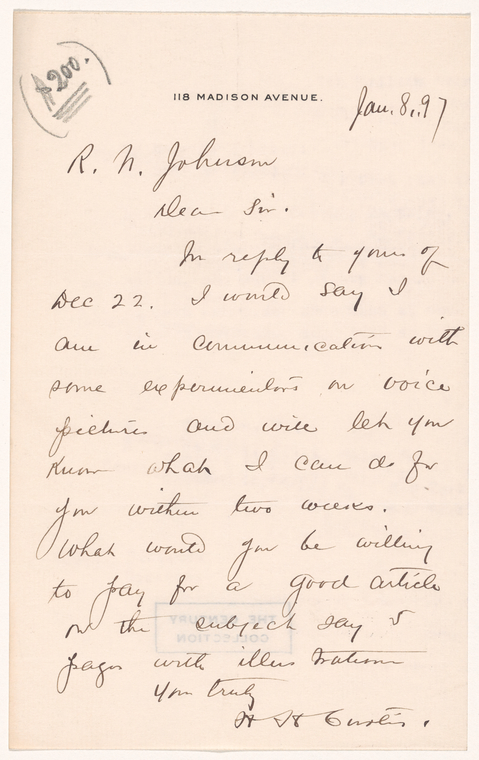 A 200.
118 MADISON AVENUE.
Jan. 8, 97
R. N. Johnson
Dear Sir.
In reply to yours of
Dec 22. I would say I
am in communication with
some experimentors on voice
pictures and will let you
know what I can do for
you within two weeks.
What would you be willing
to pay for a good article
on the subject say 5
pages with illustrations
Yours truly
H H Curtis.
THE CENTURY
COLLECTION